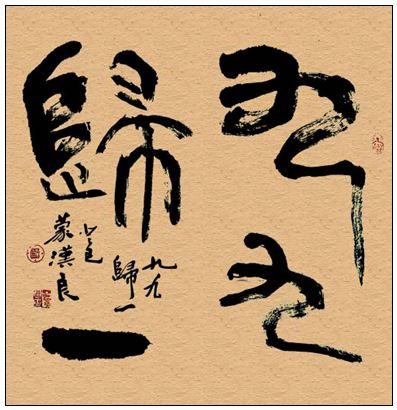 九九
歸一
九九
歸一
癸巳
蒙漢良